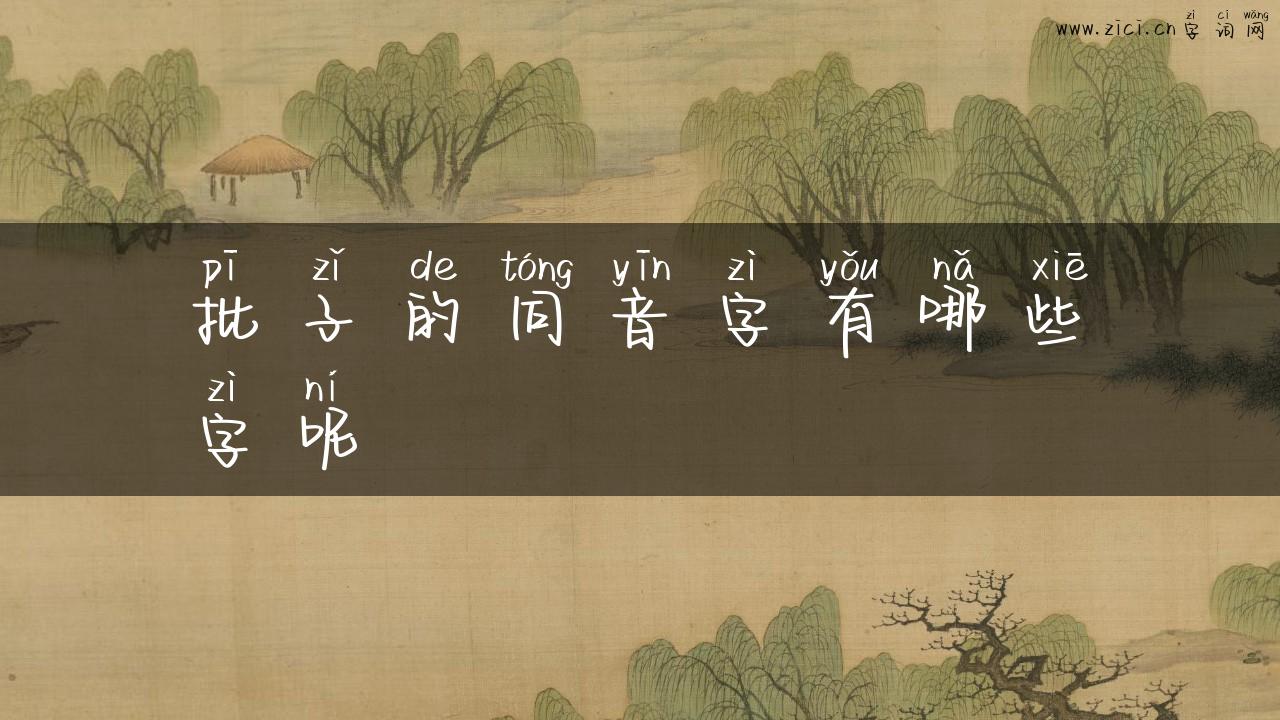 zì cí wǎng
www.zici.cn 字 词 网
pī zǐ de tóng yīn zì yǒu nǎ xiē
批 子 的 同 音 字 有 哪 些
zì ní
字 呢